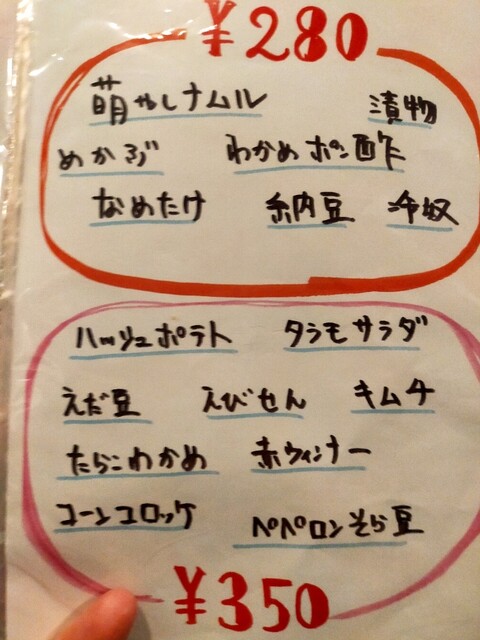 ¥280
萌やしナムル 漬物
めかぶ わかめポン酢
なめたけ 納豆 冷奴
ハッシュポテト タラモサラダ
えだ豆 えびせん キムチ
たらこわかめ 赤ウィンナー
コーンコロッケ ペペロンそら豆
¥350